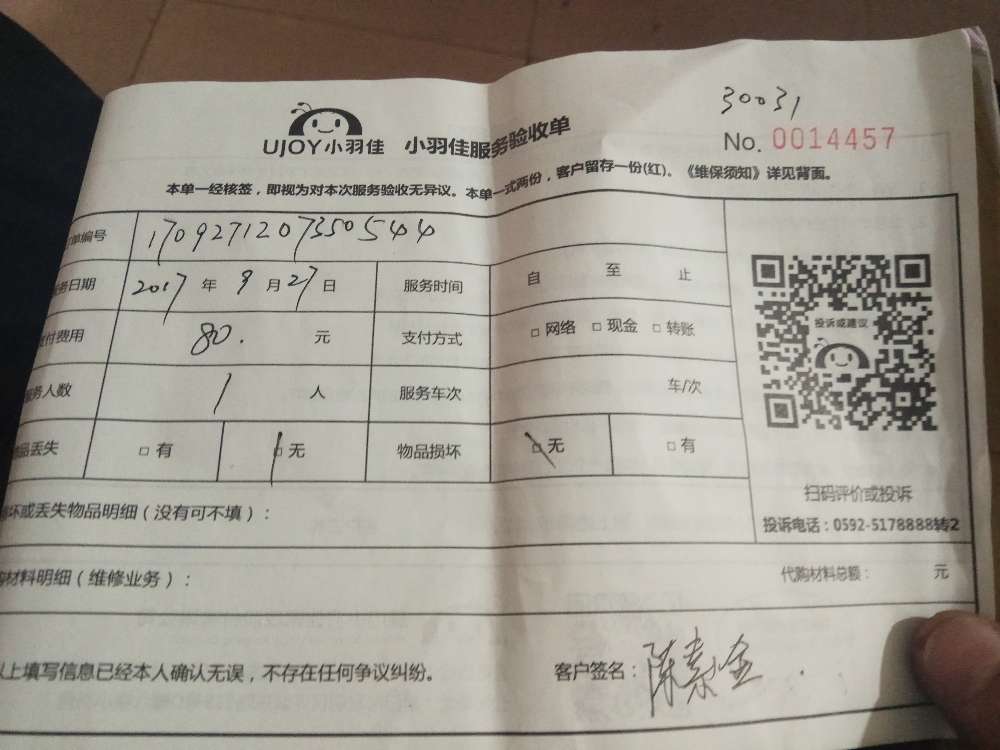 30031
UJOY小羽佳 小羽佳服务验收单
No. 0014457
本单一经核签，即视为对本次服务验收无异议。本单一式两份，客户留存一份(红)。《维保须知》详见背面。
单编号 1709271207350544
务日期 2017 年 9 月 27 日 服务时间 自 至 止
付费用 80. 元 支付方式 □ 网络 □ 现金 □ 转账
务人数 1 人 服务车次 车/次
品丢失 □ 有 □ 无 物品损坏 □ 无 □ 有
投诉或建议
扫码评价或投诉
投诉电话：0592-5178888转2
坏或丢失物品明细（没有可不填）：
购材料明细（维修业务）： 代购材料总额： 元
以上填写信息已经本人确认无误，不存在任何争议纠纷。 客户签名：陈素金